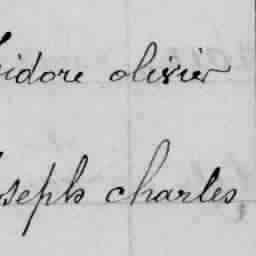 isidore olivier
oseph charles